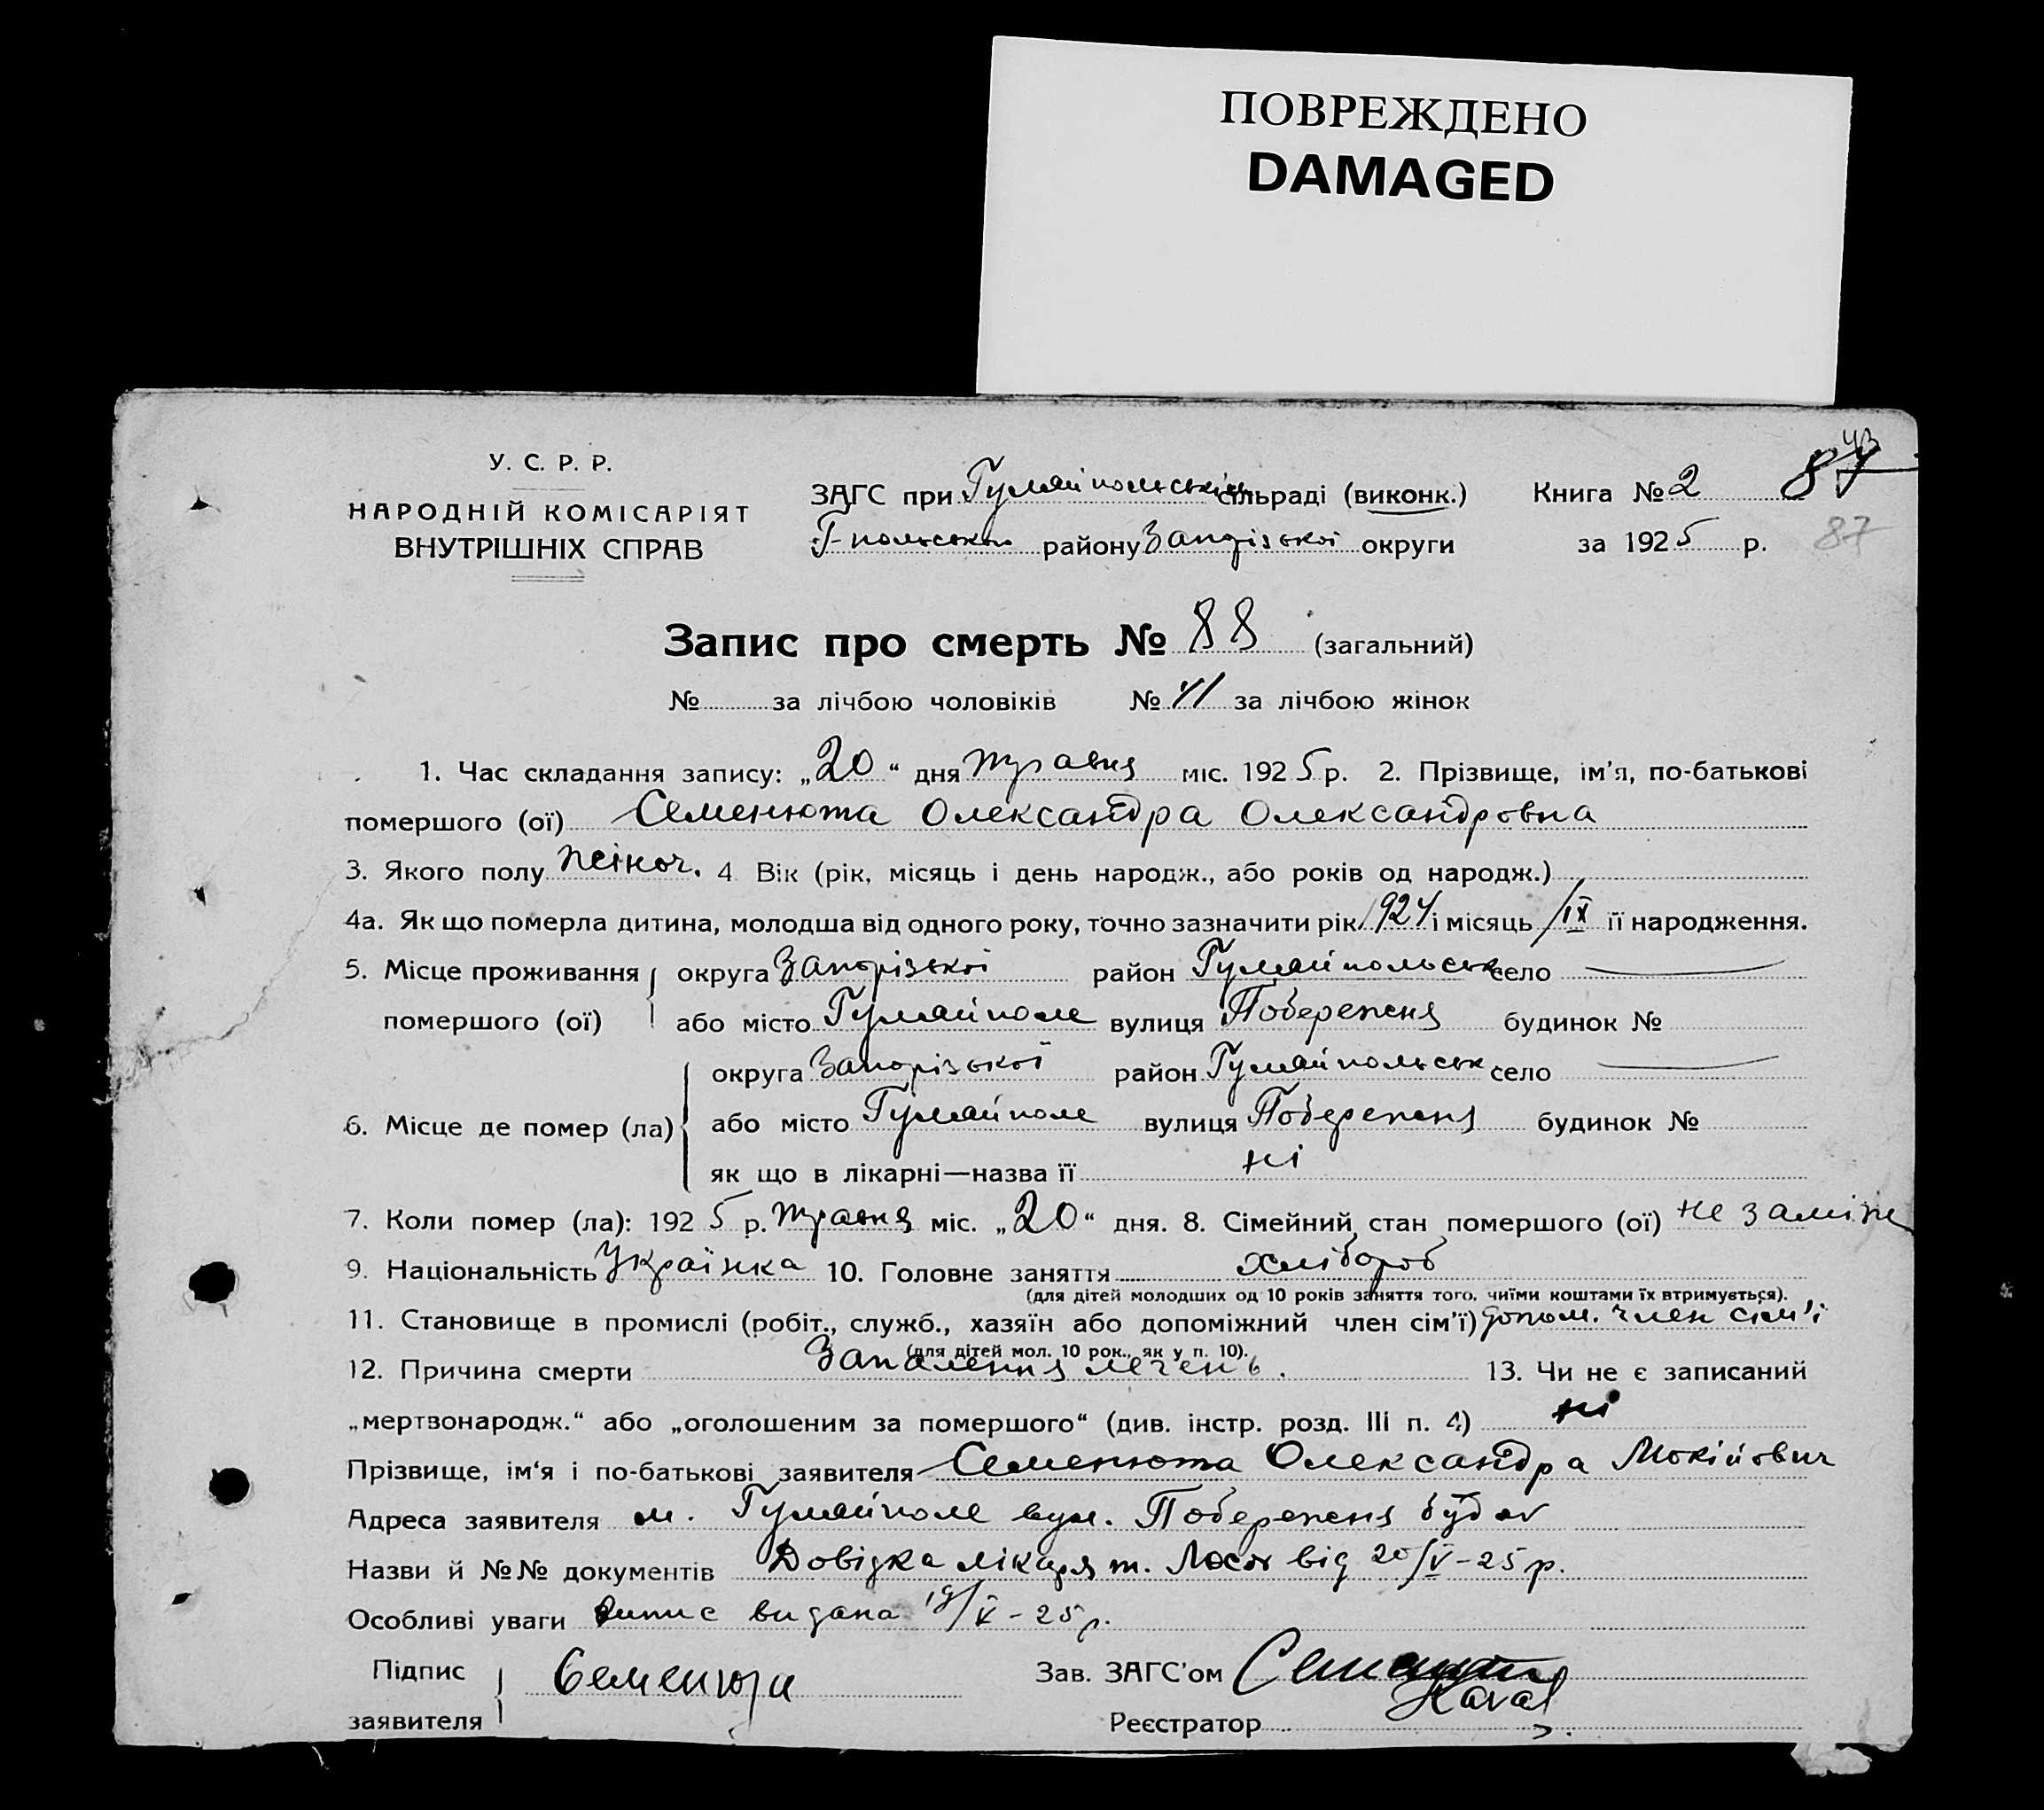 ПОВРЕЖДЕНО
DAMAGED
У. С. Р. Р.
НАРОДНІЙ КОМІСАРІЯТ
ВНУТРІШНІХ СПРАВ
ЗАГС при Гуляйпольськім сільраді (виконк.)
Г-польського району Запорізької округи
Книга № 2
за 1925 р.
87
Запис про смерть № 88 (загальний)
№ за лічбою чоловіків № 41 за лічбою жінок
1. Час складання запису: „20“ дня травня міс. 1925 р. 2. Прізвище, ім'я, по-батькові
помершого (ої) Семенюта Олександра Олександровна
3. Якого полу жіноч. 4 Вік (рік, місяць і день народж., або років од народж.)
4а. Як що померла дитина, молодша від одного року, точно зазначити рік 1924 і місяць /IX її народження.
5. Місце проживання округа Запорізької район Гуляйпольськ село —
помершого (ої) або місто Гуляйполе вулиця Побережня будинок №
округа Запорізької район Гуляйпольськ село —
6. Місце де помер (ла) або місто Гуляйполе вулиця Побережня будинок №
як що в лікарні—назва її ні
7. Коли помер (ла): 1925 р. травня міс. „20“ дня. 8. Сімейний стан помершого (ої) не заміж
9. Національність Українка 10. Головне заняття хлібороб
(для дітей молодших од 10 років заняття того, чиїми коштами їх втримується).
11. Становище в промислі (робіт., служб., хазяїн або допоміжний член сім'ї) допом. член сім'ї
(для дітей мол. 10 рок., як у п. 10).
12. Причина смерти Запалення легень. 13. Чи не є записаний
„мертвонародж.“ або „оголошеним за помершого“ (див. інстр. розд. III п. 4) ні
Прізвище, ім'я і по-батькові заявителя Семенюта Олександра Мокійович
Адреса заявителя м. Гуляйполе вул. Побережня
Назви й №№ документів Довідка лікаря т. від 20/V-25 р.
Особливі уваги видана 19/V-25 р.
Підпис
заявителя Семенюта
Зав. ЗАГС'ом
Реєстратор